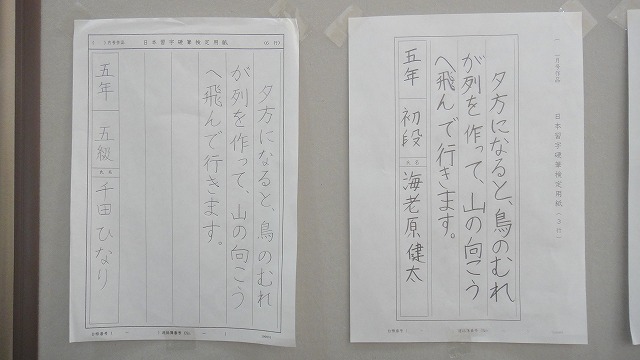 日本習字硬筆検定用紙
夕方になると、鳥のむれ
が列を作って、山の向こう
へ飛んで行きます。
五年 五級 氏名 千田ひなり
日本習字硬筆検定用紙(3行)
夕方になると、鳥のむれ
が列を作って、山の向こう
へ飛んで行きます。
五年 初段 氏名 海老原健太